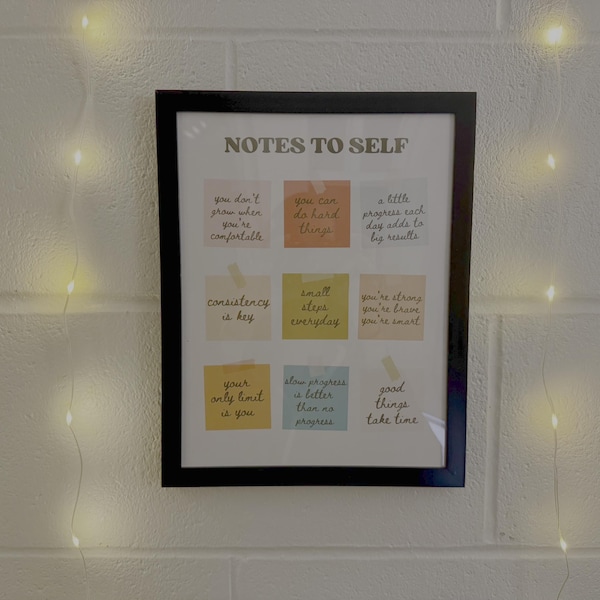 NOTES TO SELF
you don't
grow when
you're
comfortable
you can
do hard
things
a little
progress each
day adds to
big results
consistency
is key
small
steps
everyday
you're strong
you're brave
you're smart
your
only limit
is you
slow progress
is better
than no
progress
good
things
take time